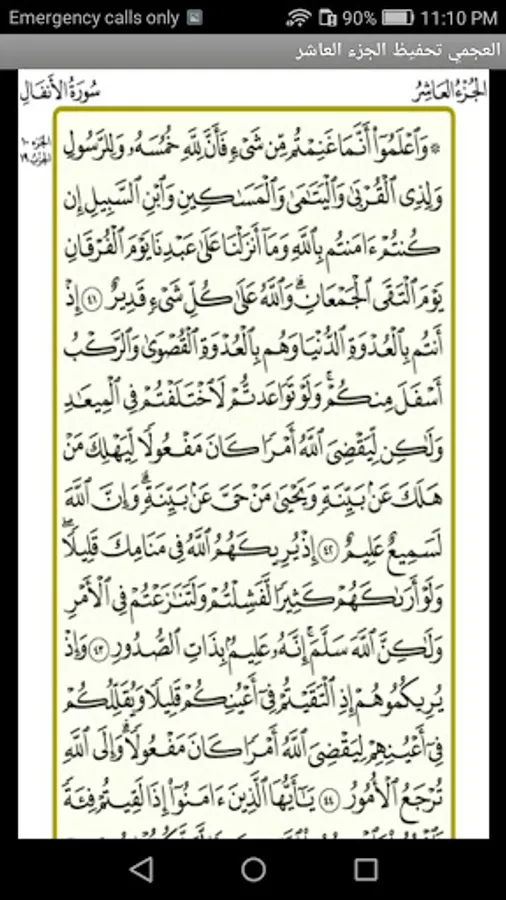 Emergency calls only 90% 11:10 PM
العجمي تحفيظ الجزء العاشر
الجُزْءُ العَاشِرُ
سُورَةُ الأَنفَالِ
الجزء ١٠
الحزب ١٩
* وَٱعْلَمُوٓا۟ أَنَّمَا غَنِمْتُم مِّن شَىْءٍ فَأَنَّ لِلَّهِ خُمُسَهُۥ وَلِلرَّسُولِ
وَلِذِى ٱلْقُرْبَىٰ وَٱلْيَتَـٰمَىٰ وَٱلْمَسَـٰكِينِ وَٱبْنِ ٱلسَّبِيلِ إِن
كُنتُمْ ءَامَنتُم بِٱللَّهِ وَمَآ أَنزَلْنَا عَلَىٰ عَبْدِنَا يَوْمَ ٱلْفُرْقَانِ
يَوْمَ ٱلْتَقَى ٱلْجَمْعَانِ ۗ وَٱللَّهُ عَلَىٰ كُلِّ شَىْءٍ قَدِيرٌ ٤١ إِذْ
أَنتُم بِٱلْعُدْوَةِ ٱلدُّنْيَا وَهُم بِٱلْعُدْوَةِ ٱلْقُصْوَىٰ وَٱلرَّكْبُ
أَسْفَلَ مِنكُمْ ۚ وَلَوْ تَوَاعَدتُّمْ لَٱخْتَلَفْتُمْ فِى ٱلْمِيعَـٰدِ
وَلَـٰكِن لِّيَقْضِىَ ٱللَّهُ أَمْرًا كَانَ مَفْعُولًا لِّيَهْلِكَ مَنْ
هَلَكَ عَنۢ بَيِّنَةٍ وَيَحْيَىٰ مَنْ حَىَّ عَنۢ بَيِّنَةٍ ۗ وَإِنَّ ٱللَّهَ
لَسَمِيعٌ عَلِيمٌ ٤٢ إِذْ يُرِيكَهُمُ ٱللَّهُ فِى مَنَامِكَ قَلِيلًا ۖ
وَلَوْ أَرَىٰكَهُمْ كَثِيرًا لَّفَشِلْتُمْ وَلَتَنَـٰزَعْتُمْ فِى ٱلْأَمْرِ
وَلَـٰكِنَّ ٱللَّهَ سَلَّمَ ۗ إِنَّهُۥ عَلِيمٌۢ بِذَاتِ ٱلصُّدُورِ ٤٣ وَإِذْ
يُرِيكُمُوهُمْ إِذِ ٱلْتَقَيْتُمْ فِىٓ أَعْيُنِكُمْ قَلِيلًا وَيُقَلِّلُكُمْ
فِىٓ أَعْيُنِهِمْ لِيَقْضِىَ ٱللَّهُ أَمْرًا كَانَ مَفْعُولًا ۗ وَإِلَى ٱللَّهِ
تُرْجَعُ ٱلْأُمُورُ ٤٤ يَـٰٓأَيُّهَا ٱلَّذِينَ ءَامَنُوٓا۟ إِذَا لَقِيتُمْ فِئَةً